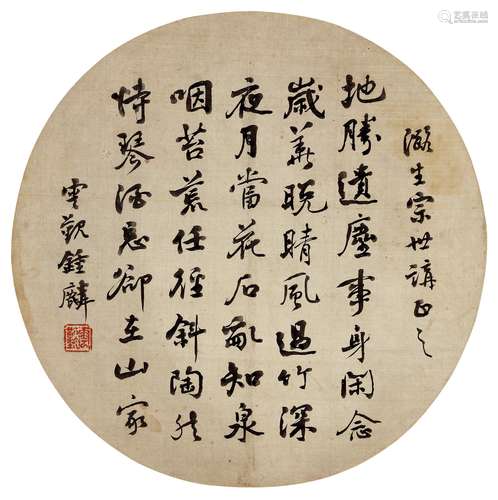 艺狐在线
生宗世講正之
地勝遺塵事身閑念
歲華晚晴風過竹深
夜月當花石亂知泉
咽苔荒任徑斜陶然
恃琴酒忘卻在山家
雲覲鍾麟